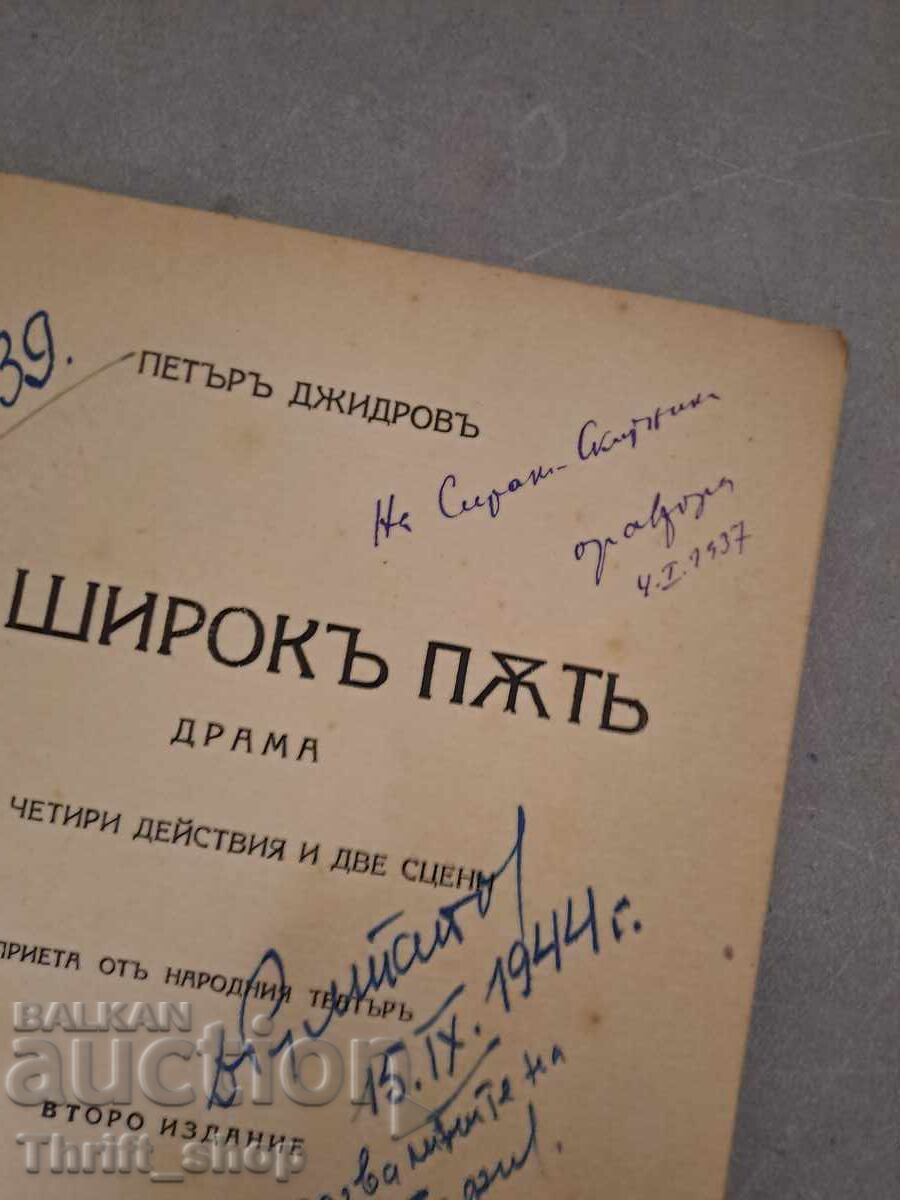 39.
ПЕТЪРЪ ДЖИДРОВЪ
На Сирак-Скитник
4.I.1937
ШИРОКЪ ПѪТЬ
ДРАМА
ЧЕТИРИ ДЕЙСТВИЯ И ДВЕ СЦЕНИ
ПРИЕТА ОТЪ НАРОДНИЯ ТЕАТЪРЪ
15.IX.1944 г.
ВТОРО ИЗДАНИЕ
на
BALKAN
auction
Thrift_shop